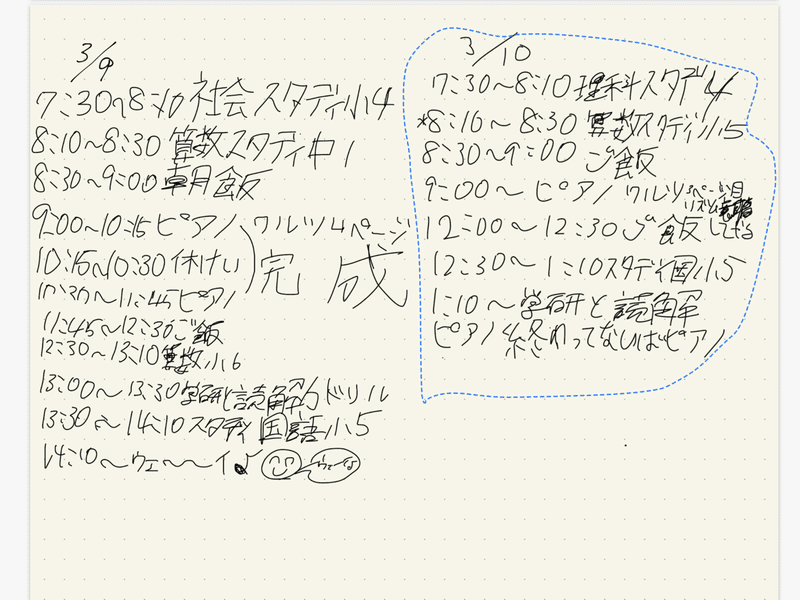 3/9
7:30~8:10 社会スタディ小4
8:10~8:30 算数スタディ中1
8:30~9:00 朝飯
9:00~10:15 ピアノ ワルツ4ページ
10:15~10:30 休けい
完成
10:30~11:45 ピアノ
11:45~12:30 ご飯
12:30~13:10 算数小6
13:00~13:30 学研と読解力ドリル
13:30~14:10 スタディ国語小5
14:10~ウェ~~イ♪
3/10
7:30~8:10 理科スタデ4
*8:10~8:30 算数スタディ小5
8:30~9:00 ご飯
9:00~ ピアノ ワルツ
リズム
12:00~12:30 ご飯
12:30~1:10 スタディ国小5
1:10~学研と読解
ピアノ終わってないばピアノ